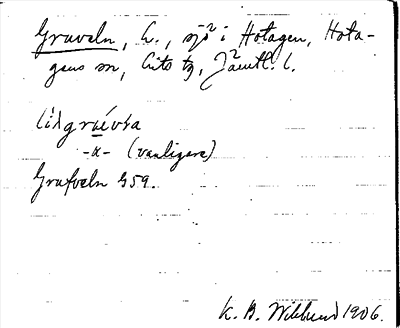 Graveln, L., sjö i Hotagen, Hota-
gens sn, Lits tg, Jämtl. l.
lilgraévśa
-u- (vanligare)
Grafveln G59.
K. B. Wiklund 1906.